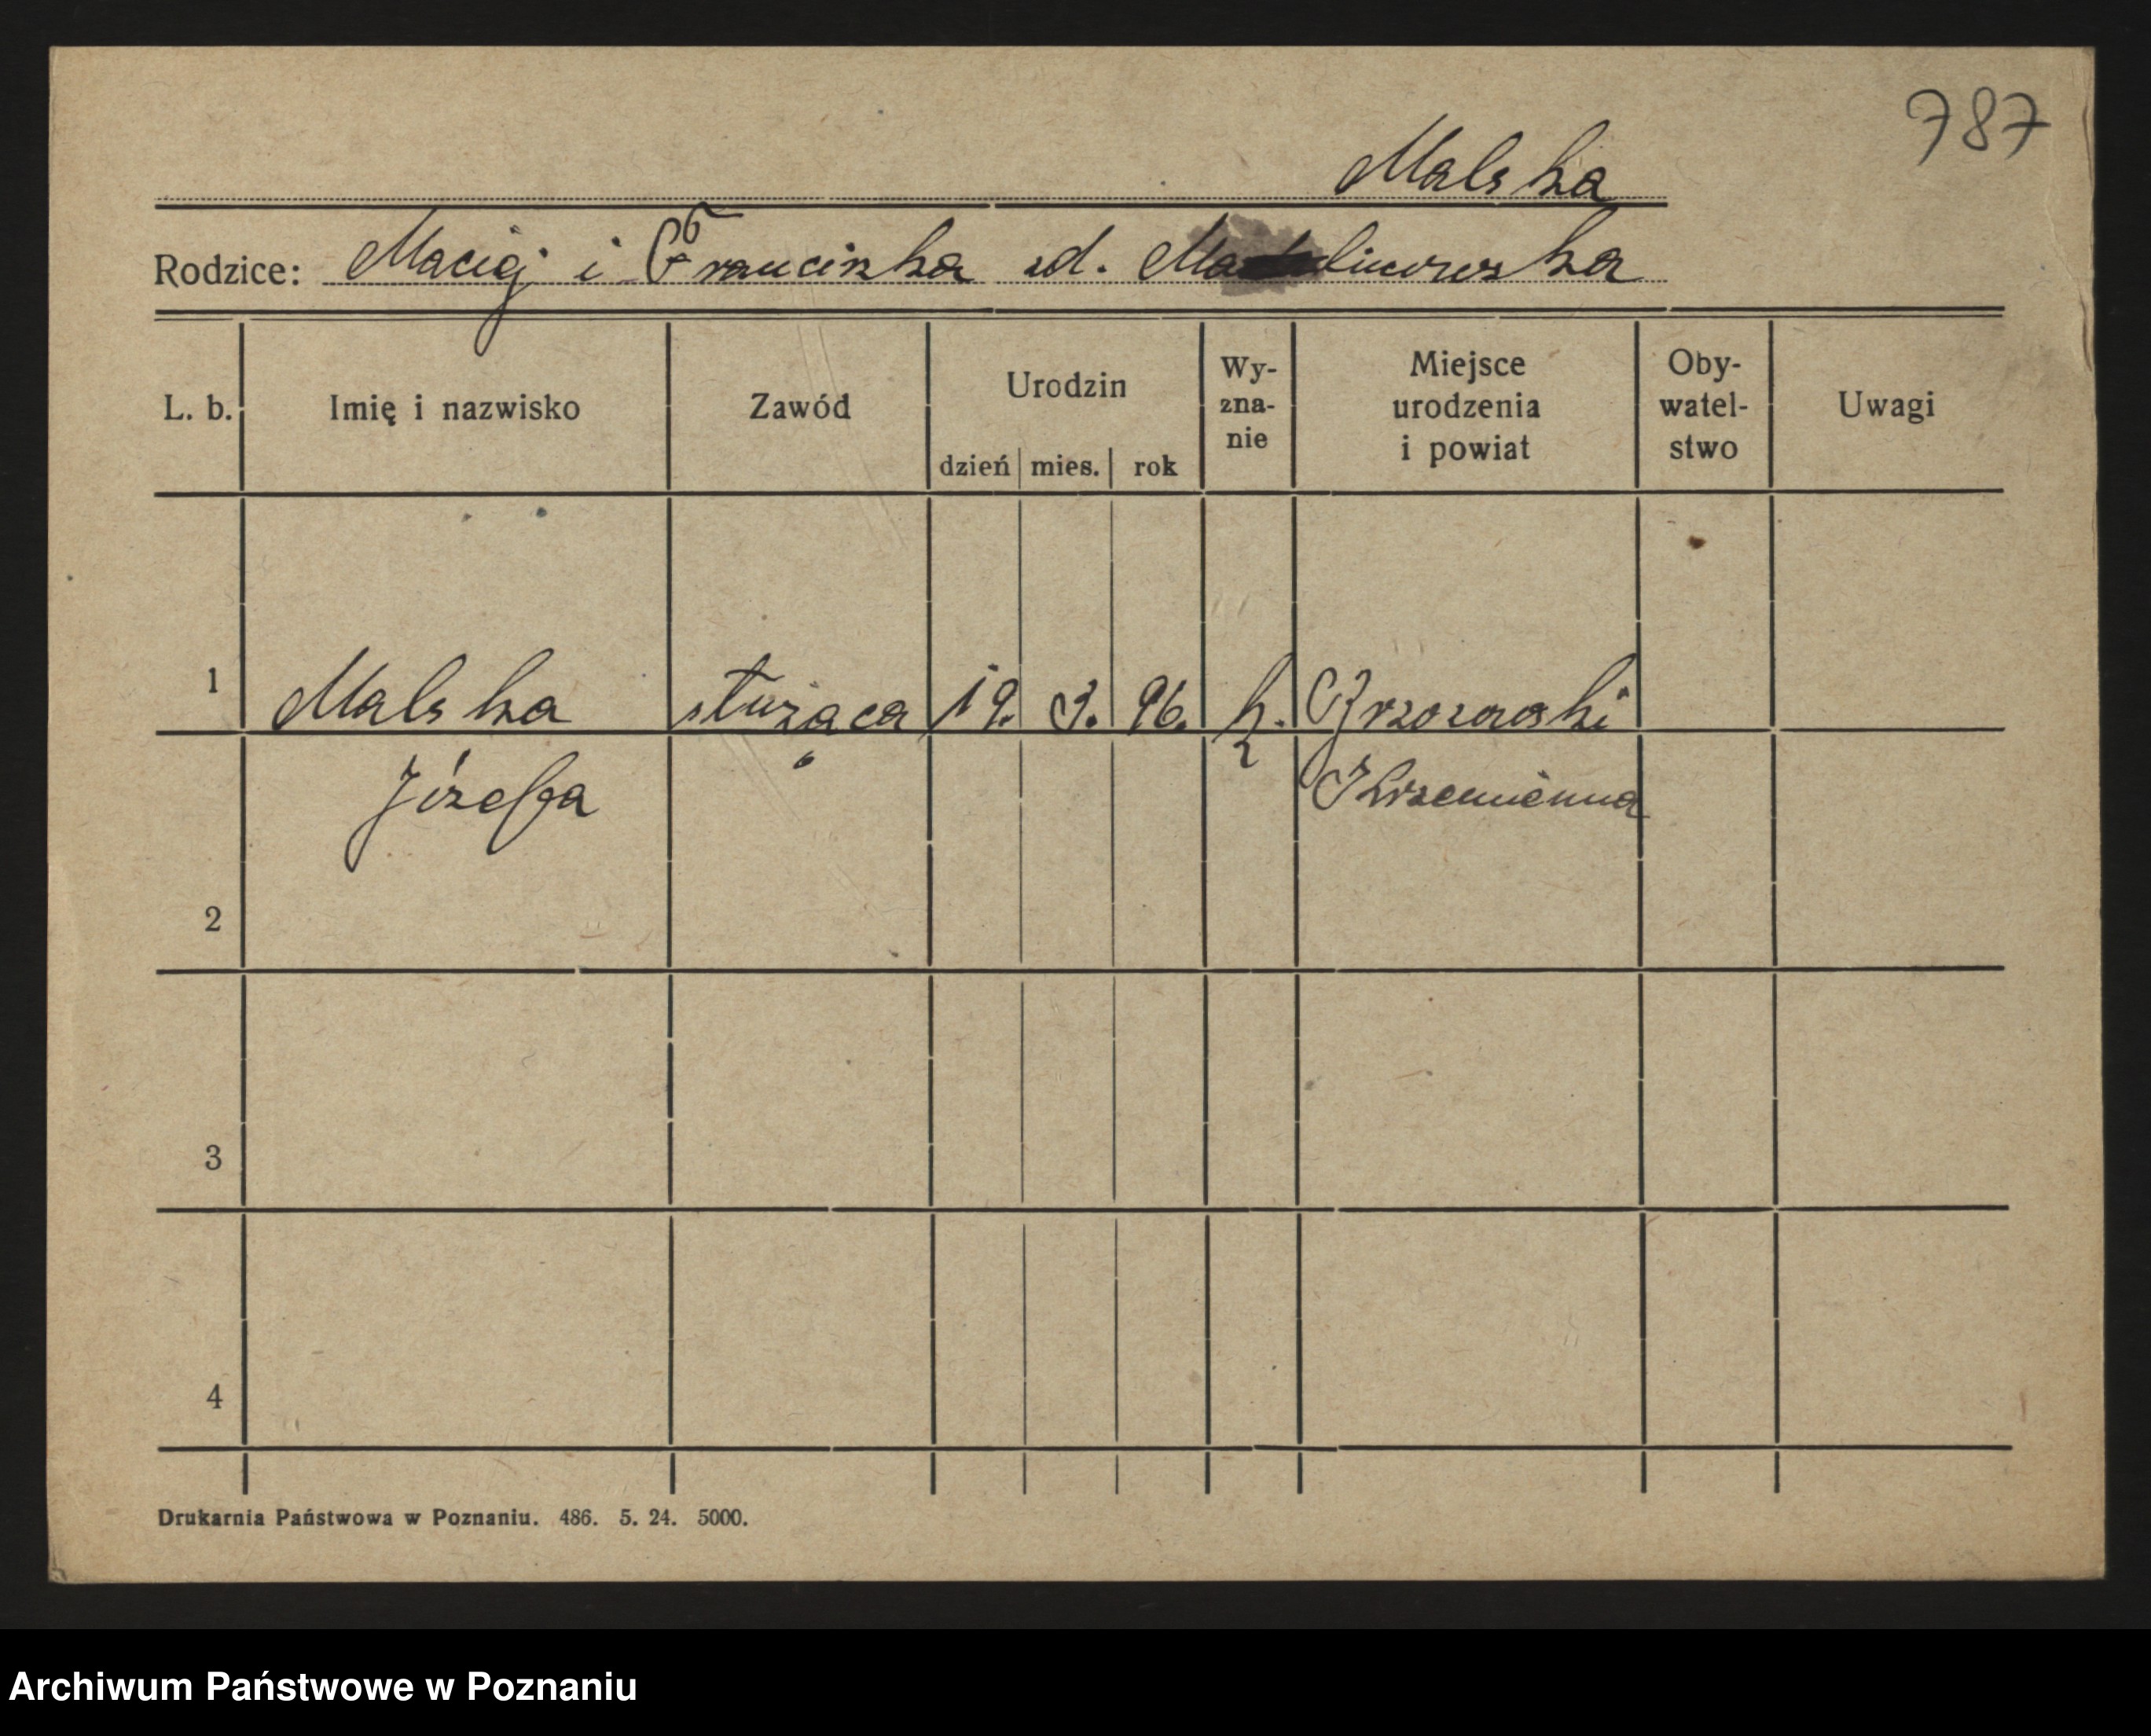 787
Malska
Rodzice: Maciej i Franciszka zd. linowska
L. b. Imię i nazwisko Zawód Urodzin dzień mies. rok Wy- zna- nie Miejsce urodzenia i powiat Oby- watel- stwo Uwagi
1 Malska służąca 19. 3. 96. k.
Józefa
2
3
4
Drukarnia Państwowa w Poznaniu. 486. 5. 24. 5000.
Archiwum Państwowe w Poznaniu